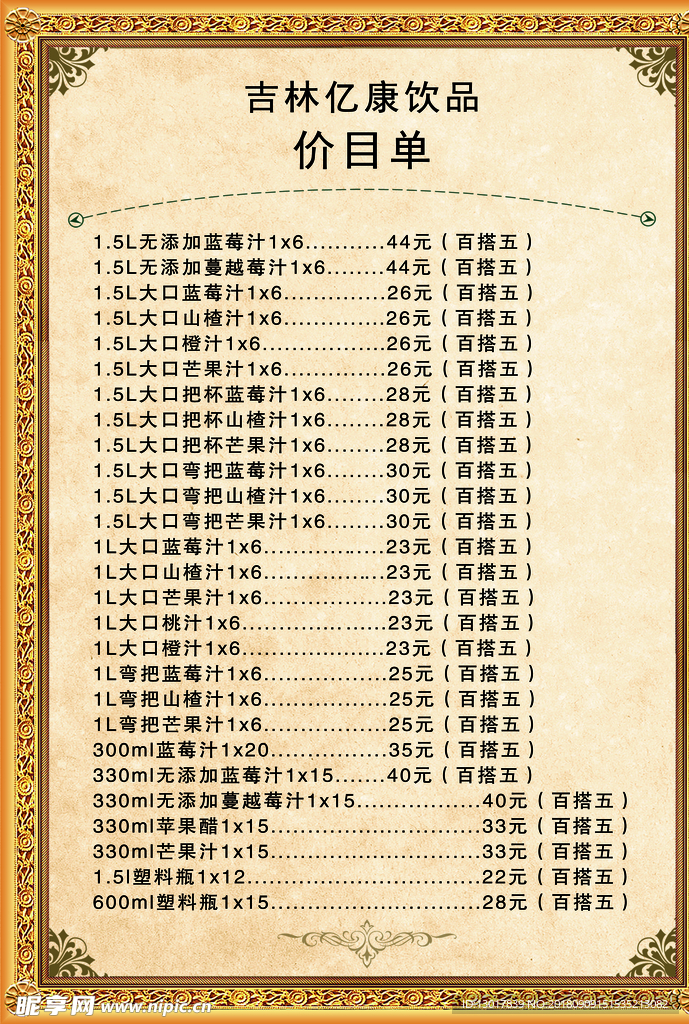 吉林亿康饮品
价目单
1.5L无添加蓝莓汁1x6...........44元（百搭五）
1.5L无添加蔓越莓汁1x6........44元（百搭五）
1.5L大口蓝莓汁1x6..............26元（百搭五）
1.5L大口山楂汁1x6..............26元（百搭五）
1.5L大口橙汁1x6.................26元（百搭五）
1.5L大口芒果汁1x6..............26元（百搭五）
1.5L大口把杯蓝莓汁1x6........28元（百搭五）
1.5L大口把杯山楂汁1x6........28元（百搭五）
1.5L大口把杯芒果汁1x6........28元（百搭五）
1.5L大口弯把蓝莓汁1x6........30元（百搭五）
1.5L大口弯把山楂汁1x6........30元（百搭五）
1.5L大口弯把芒果汁1x6........30元（百搭五）
1L大口蓝莓汁1x6.................23元（百搭五）
1L大口山楂汁1x6.................23元（百搭五）
1L大口芒果汁1x6.................23元（百搭五）
1L大口桃汁1x6....................23元（百搭五）
1L大口橙汁1x6....................23元（百搭五）
1L弯把蓝莓汁1x6.................25元（百搭五）
1L弯把山楂汁1x6.................25元（百搭五）
1L弯把芒果汁1x6.................25元（百搭五）
300ml蓝莓汁1x20................35元（百搭五）
330ml无添加蓝莓汁1x15.......40元（百搭五）
330ml无添加蔓越莓汁1x15.................40元（百搭五）
330ml苹果醋1x15.............................33元（百搭五）
330ml芒果汁1x15.............................33元（百搭五）
1.5l塑料瓶1x12................................22元（百搭五）
600ml塑料瓶1x15.............................28元（百搭五）
昵享网 www.nipic.cn